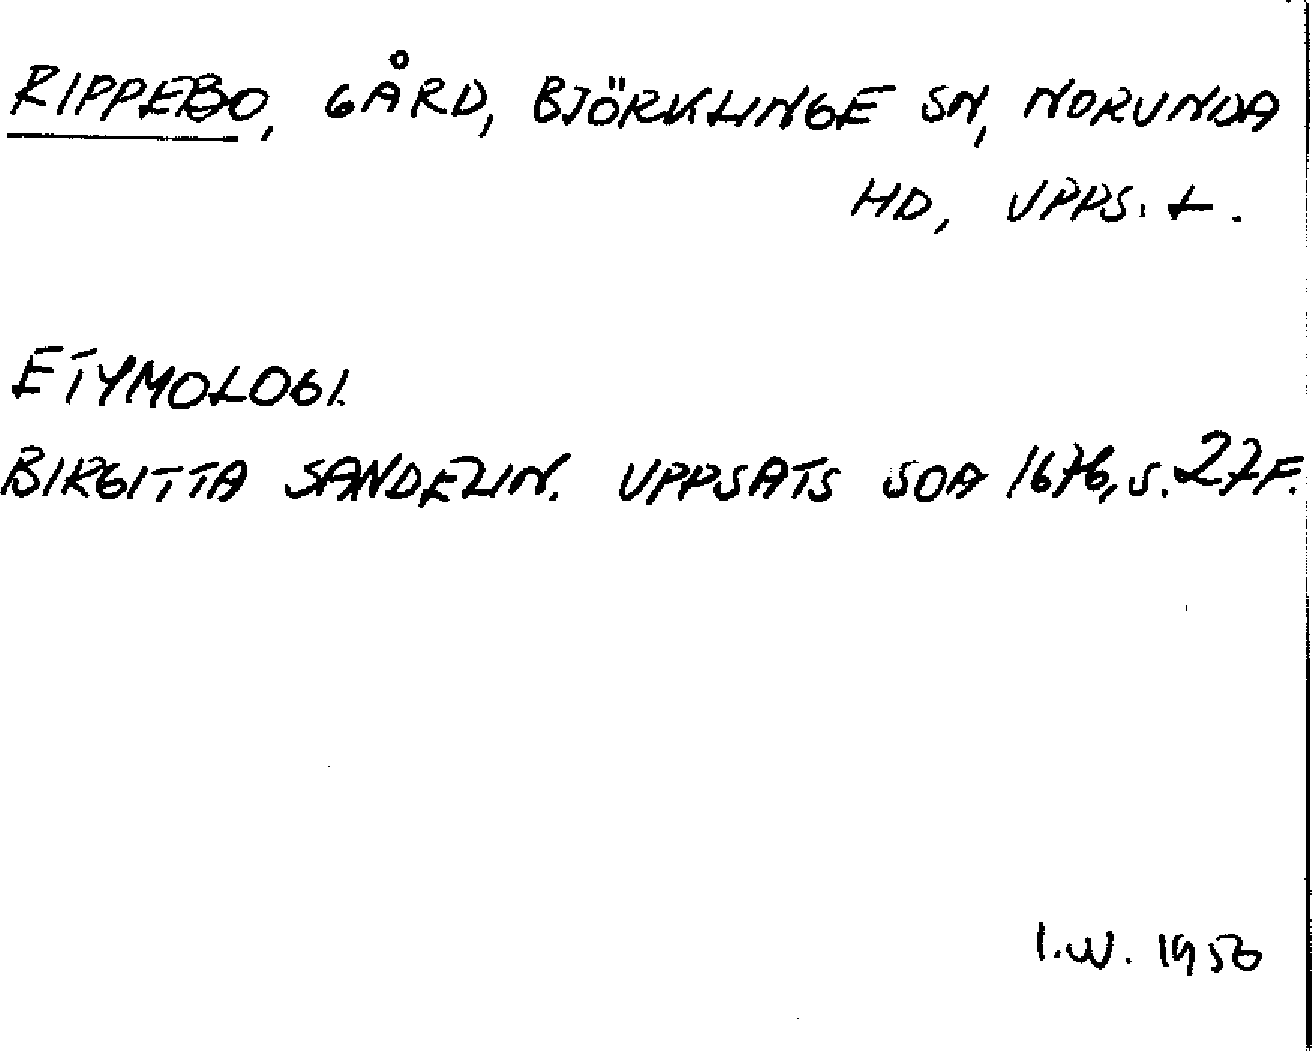 RIPPEBO, GÅRD, BJÖRKLINGE SN, NORUNDA
HD, UPPS. L.
ETYMOLOGI.
BIRGITTA SANDELIN. UPPSATS SOA 1676, S. 27F.
I.W. 1956